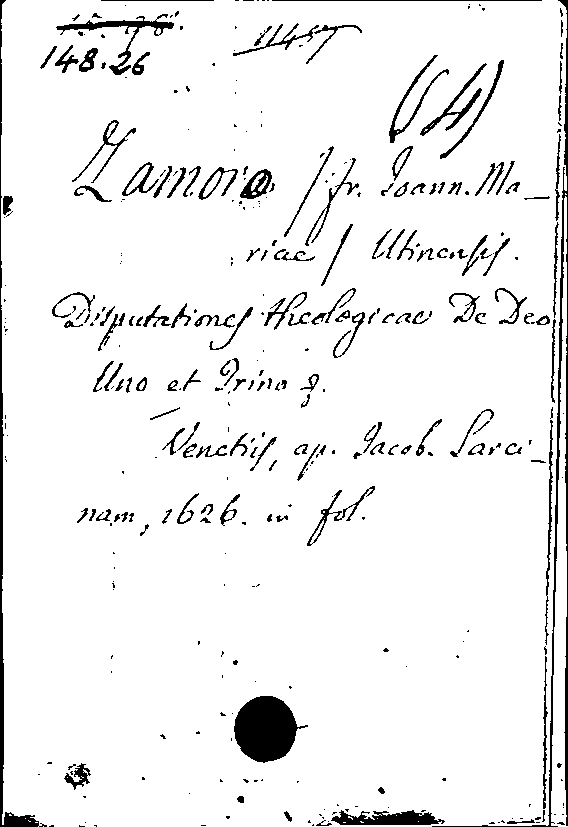 11457
148.26
(S4)
Zamora / fr. Ioann. Ma-
riae / Utinensis.
Disputationes theologicae De Deo
Uno et Trino &.
Venetiis, ap. Iacob. Sarci-
nam, 1626. in fol.